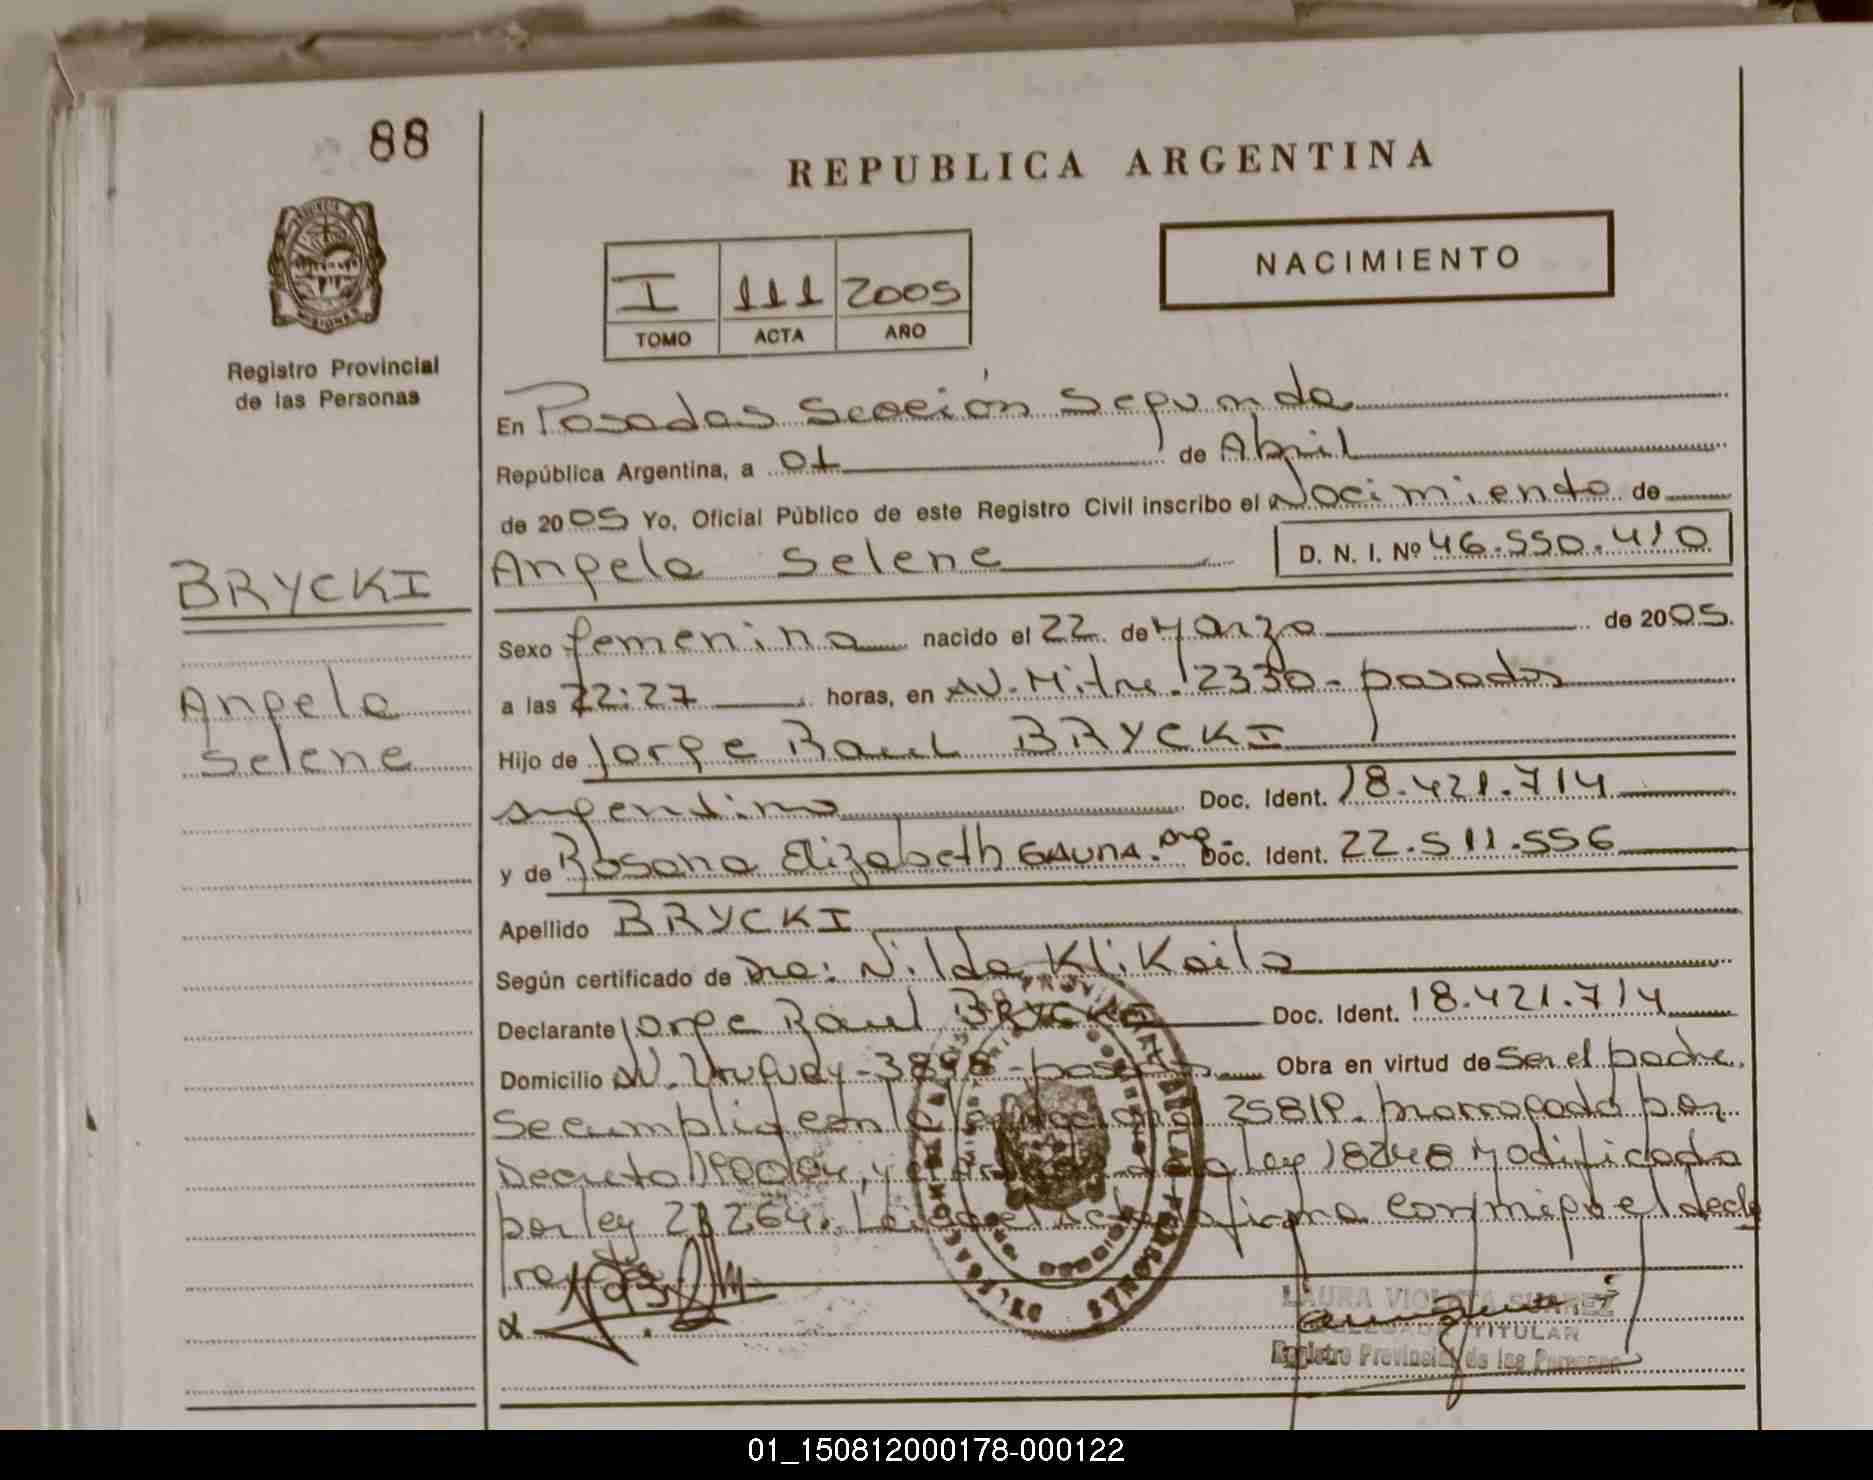 88
REPUBLICA ARGENTINA
NACIMIENTO
I 111 2005
TOMO ACTA AÑO
PROVINCIA DE
MISIONES
Registro Provincial
de las Personas
En Posadas Sección Segunda
República Argentina, a 01 de Abril
de 2005 Yo, Oficial Público de este Registro Civil inscribo el Nacimiento de
BRYCKI
Angela Selene D. N. I. Nº 46.550.410
Sexo femenino nacido el 22 de Marzo de 2005.
a las 22:27 horas, en AV. Mitre 2330 - posadas
Angela
Selene
Hijo de Jorge Raul BRYCKI
argentino Doc. Ident. 18.421.714
y de Rosana Elizabeth GAUNA. Arg. Doc. Ident. 22.511.556
Apellido BRYCKI
Según certificado de Dra: Nilda Klikaila
Declarante Jorge Raul BRYCKI Doc. Ident. 18.421.714
Domicilio AV. Uruguay - 3898 - posadas Obra en virtud de Ser el padre.
Se cumplio con la 25819. prorrogado por
Decreto 1900/04, y el de la ley 18248 Modificada
por ley 23264. Leida el Acta firma conmigo el decla
rante
LAURA VIOLETA SUAREZ
DELEGADA TITULAR
Registro Provincial de las Personas
01_150812000178-000122